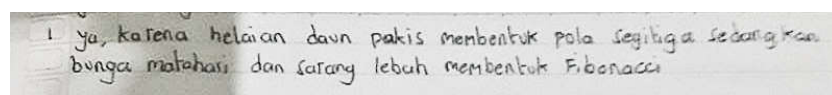 1 ya, karena helaian daun pakis membentuk pola segitiga sedangkan
bunga matahari dan sarang lebah membentuk Fibonacci